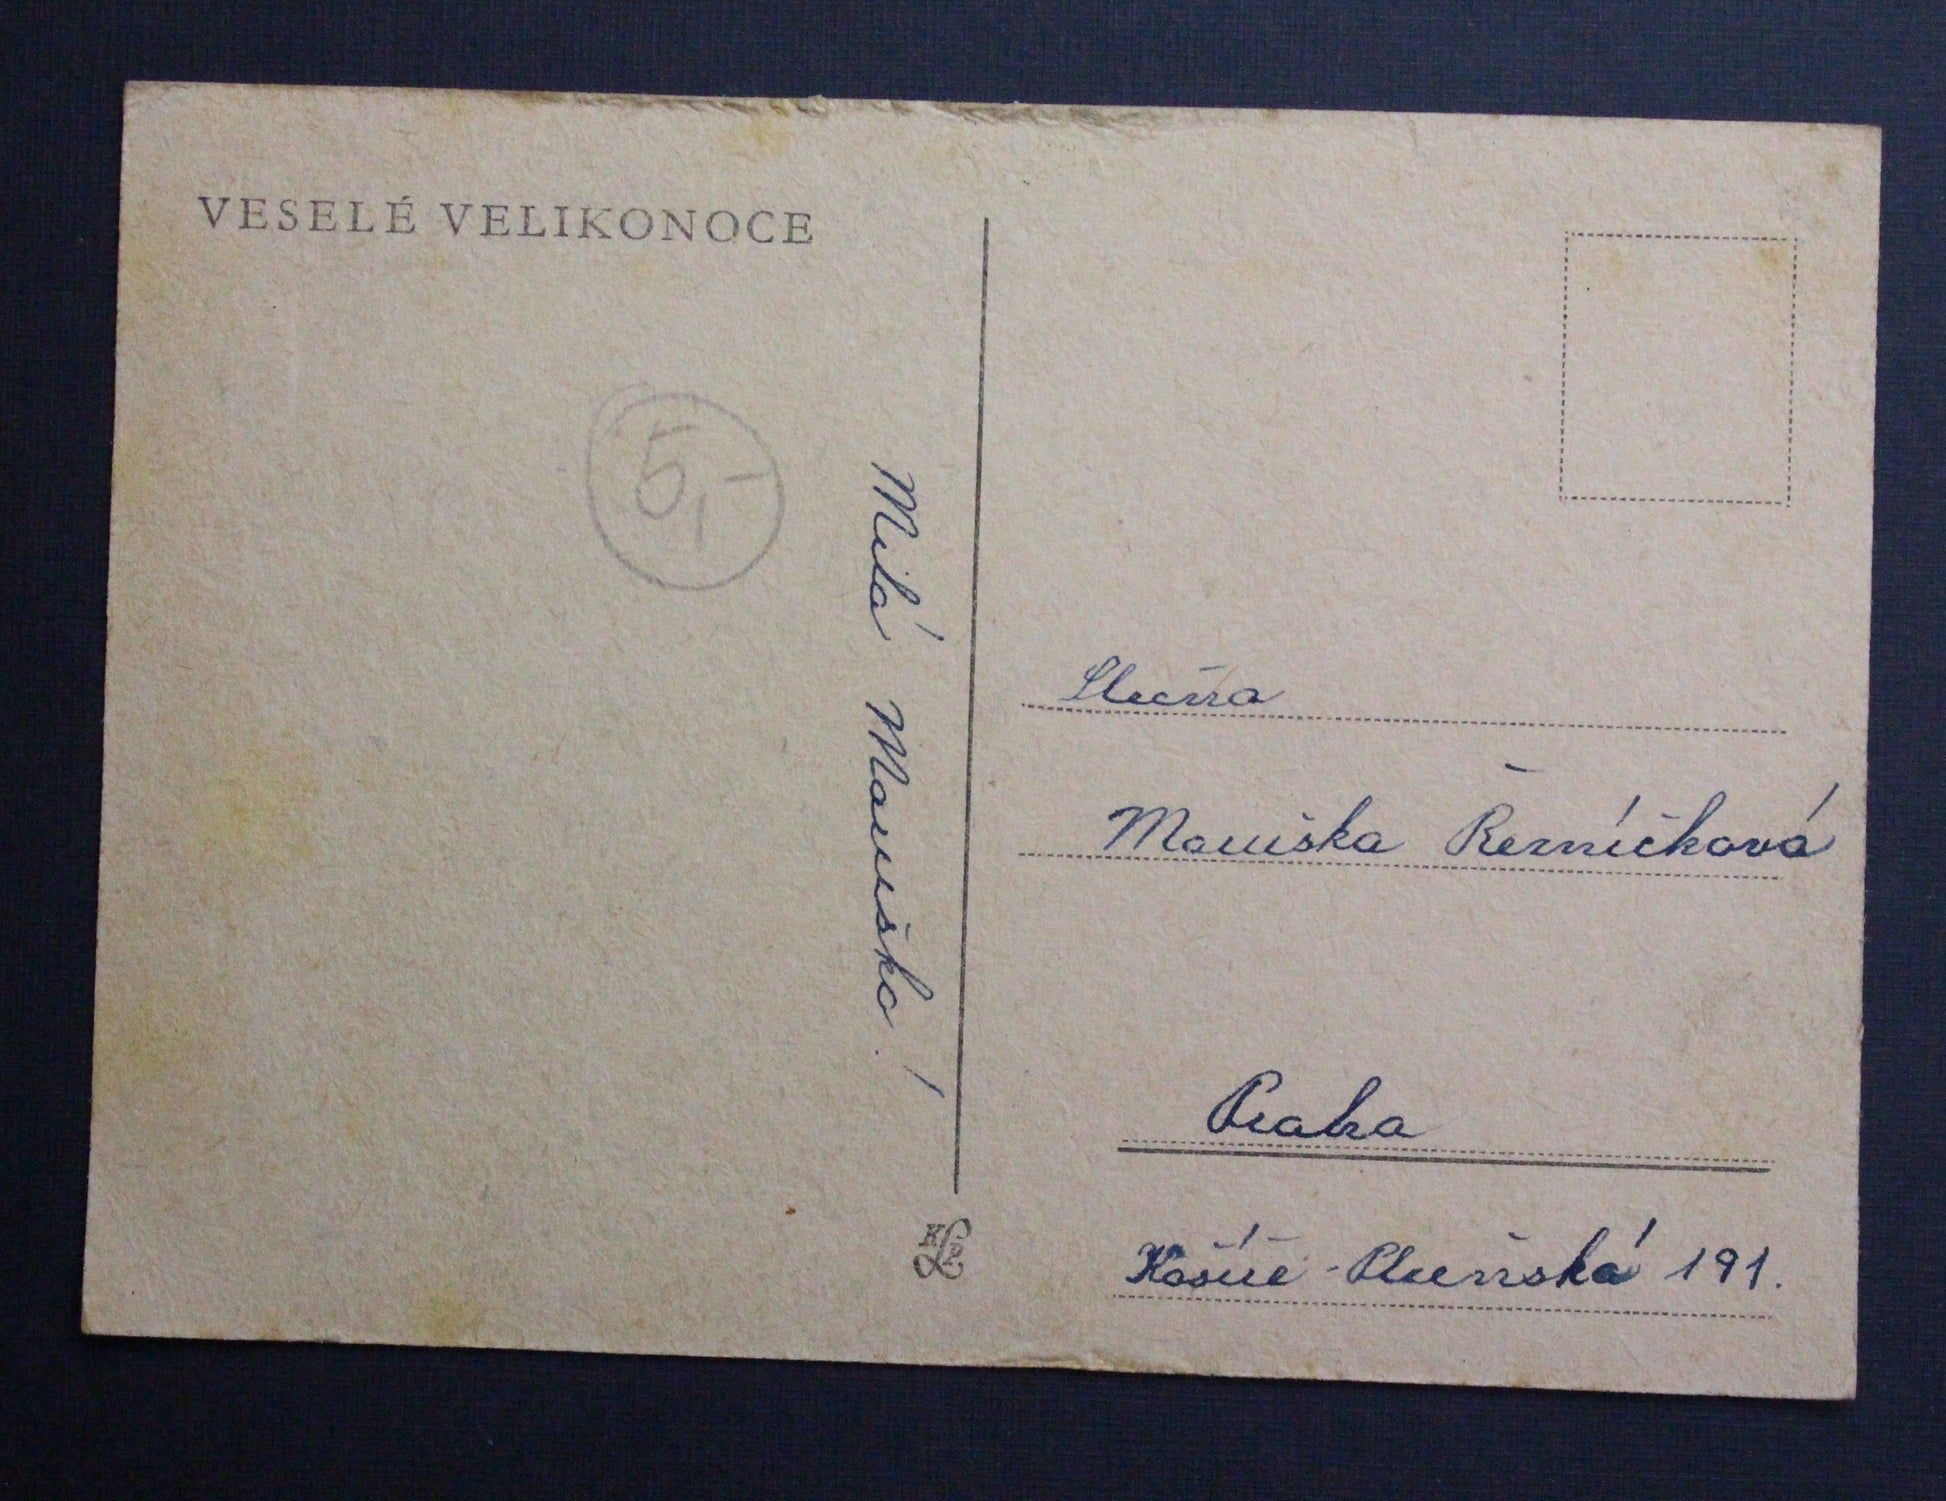 VESELÉ VELIKONOCE
5,-
Milá Maruško!
Slečna
Maruška Řezníčková
Praha
Košíře - Plzeňská 191.